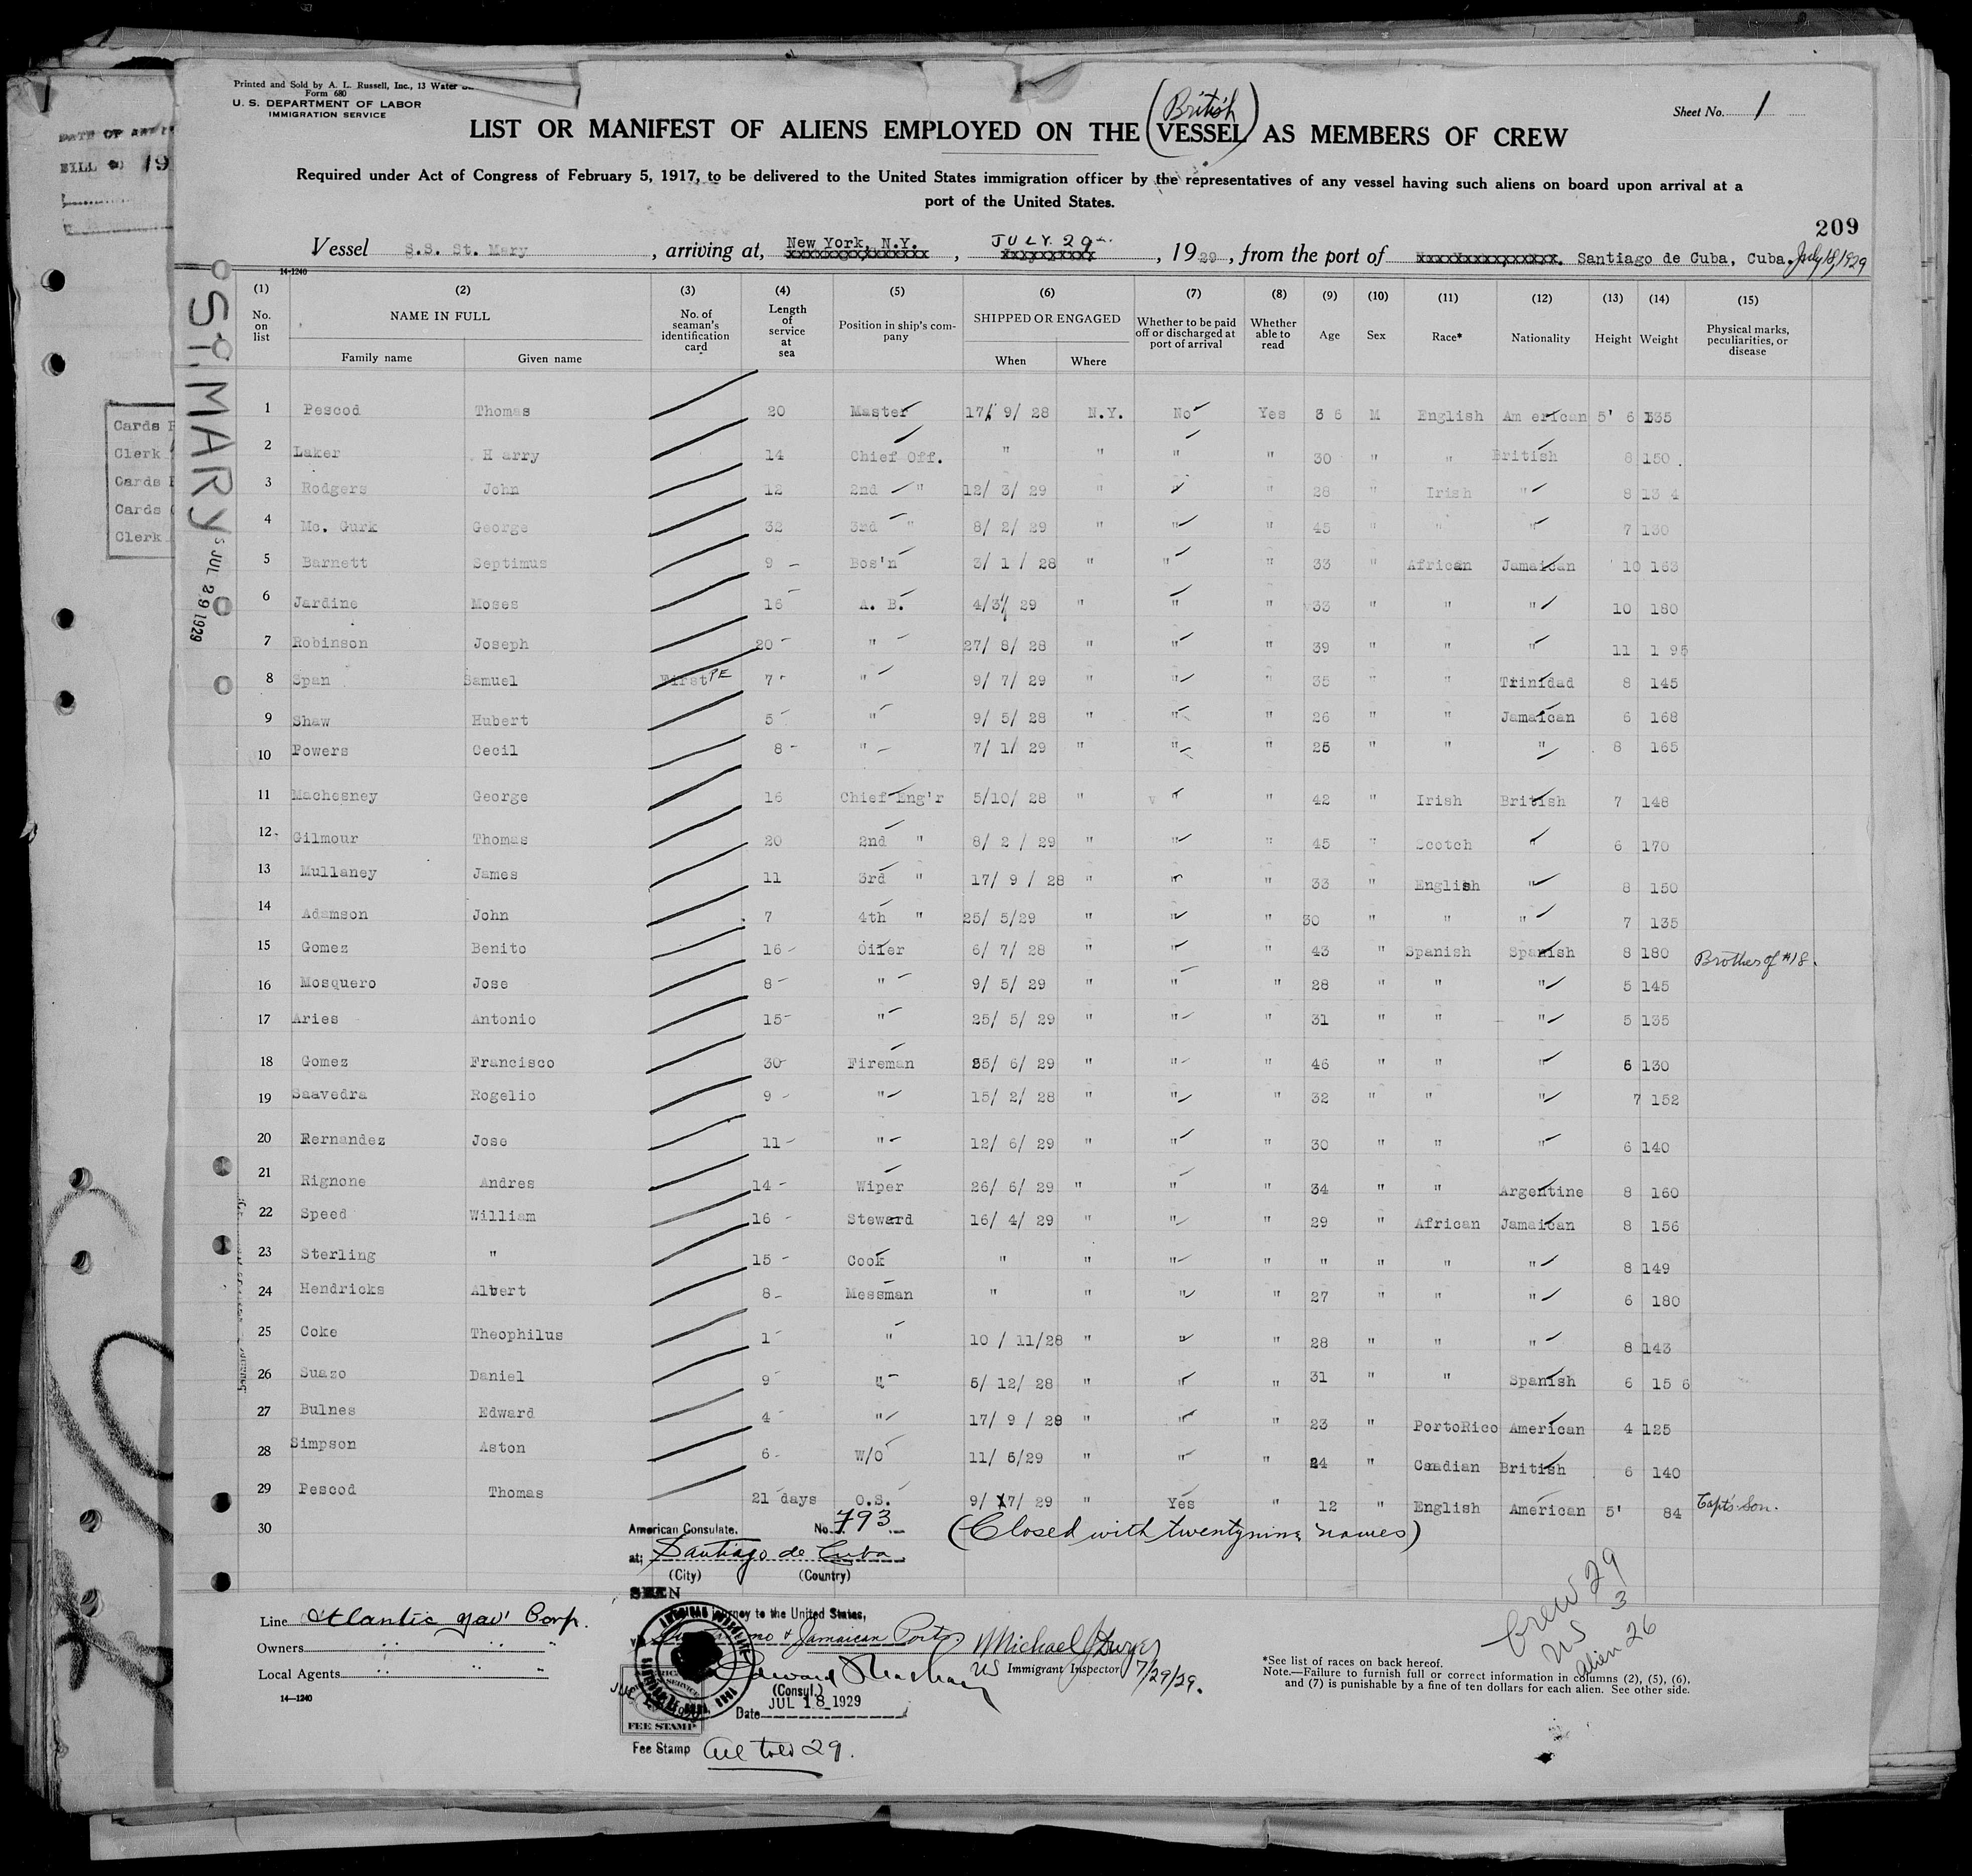 Printed and Sold by A. L. Russell, Inc., 13 Water
Form 680
U. S. DEPARTMENT OF LABOR
IMMIGRATION SERVICE
Sheet No. 1
(British)
LIST OR MANIFEST OF ALIENS EMPLOYED ON THE VESSEL AS MEMBERS OF CREW
Required under Act of Congress of February 5, 1917, to be delivered to the United States immigration officer by the representatives of any vessel having such aliens on board upon arrival at a
port of the United States.
209
Vessel S.S. St. Mary, arriving at, New York, N.Y., JULY 29, 1929, from the port of Santiago de Cuba, Cuba. July 18, 1929
14-1240
(1) (2) (3) (4) (5) (6) (7) (8) (9) (10) (11) (12) (13) (14) (15)
No. on list NAME IN FULL No. of seaman's identification card Length of service at sea Position in ship's company SHIPPED OR ENGAGED Whether to be paid off or discharged at port of arrival Whether able to read Age Sex Race* Nationality Height Weight Physical marks, peculiarities, or disease
Family name Given name When Where
1 Pescod Thomas 20 Master 17/ 9/ 28 N.Y. No Yes 36 M English American 5' 6 135
2 Laker Harry 14 Chief Off. " " " " 30 " " British 8 150
3 Rodgers John 12 2nd " 12/ 3/ 29 " " " 28 " Irish " 8 134
4 Mc. Gurk George 32 3rd " 8/ 2/ 29 " " " 45 " " " 7 130
5 Barnett Septimus 9 Bos'n 3/ 1/ 28 " " " 33 " African Jamaican 10 163
6 Jardine Moses 16 A. B. 4/3/ 29 " " " 33 " " " 10 180
7 Robinson Joseph 20 " 27/ 8/ 28 " " " 39 " " " 11 195
8 Span Samuel First PE 7 " 9/ 7/ 29 " " " 35 " " Trinidad 8 145
9 Shaw Hubert 5 " 9/ 5/ 28 " " " 26 " " Jamaican 6 168
10 Powers Cecil 8 " 7/ 1/ 29 " " " 25 " " " 8 165
11 Machesney George 16 Chief Eng'r 5/10/ 28 " " " 42 " Irish British 7 148
12 Gilmour Thomas 20 2nd " 8/ 2 / 29 " " " 45 " Scotch " 6 170
13 Mullaney James 11 3rd " 17/ 9 / 28 " " " 33 " English " 8 150
14 Adamson John 7 4th " 25/ 5/29 " " " 30 " " " 7 135
15 Gomez Benito 16 Oiler 6/ 7/ 28 " " " 43 " Spanish Spanish 8 180 Brother of #18.
16 Mosquero Jose 8 " 9/ 5/ 29 " " " 28 " " " 5 145
17 Aries Antonio 15 " 25/ 5/ 29 " " " 31 " " " 5 135
18 Gomez Francisco 30 Fireman 25/ 6/ 29 " " " 46 " " " 6 130
19 Saavedra Rogelio 9 " 15/ 2/ 28 " " " 32 " " " 7 152
20 Hernandez Jose 11 " 12/ 6/ 29 " " " 30 " " " 6 140
21 Rignone Andres 14 Wiper 26/ 6/ 29 " " " 34 " " Argentine 8 160
22 Speed William 16 Steward 16/ 4/ 29 " " " 29 " African Jamaican 8 156
23 Sterling " 15 Cook " " " " " " " " 8 149
24 Hendricks Albert 8 Messman " " " " 27 " " " 6 180
25 Coke Theophilus 1 " 10 / 11/28 " " " 28 " " " 8 143
26 Suazo Daniel 9 " 5/ 12/ 28 " " " 31 " " Spanish 6 156
27 Bulnes Edward 4 " 17/ 9 / 28 " " " 23 " PortoRico American 4 125
28 Simpson Aston 6 W/O 11/ 5/29 " " " 24 " Canadian British 6 140
29 Pescod Thomas 21 days O.S. 9/ 7/ 29 " Yes " 12 " English American 5' 84 Capt's Son.
30 (Closed with twentynine names)
American Consulate. No. 793
at; Santiago de Cuba
(City) (Country)
SEEN
journey to the United States,
Jamaican Ports
(Consul)
JUL 18 1929
Date
FEE STAMP
Fee Stamp All told 29.
Line Atlantic Nav' Corp.
Owners " " "
Local Agents " " "
14—1240
Michael J Dwyer
US Immigrant Inspector 7/29/29.
Crew 29
US 3
alien 26
*See list of races on back hereof.
Note.—Failure to furnish full or correct information in columns (2), (5), (6),
and (7) is punishable by a fine of ten dollars for each alien. See other side.
ST. MARY
JUL 29 1929
Cards
Clerk
Cards
Cards
Clerk